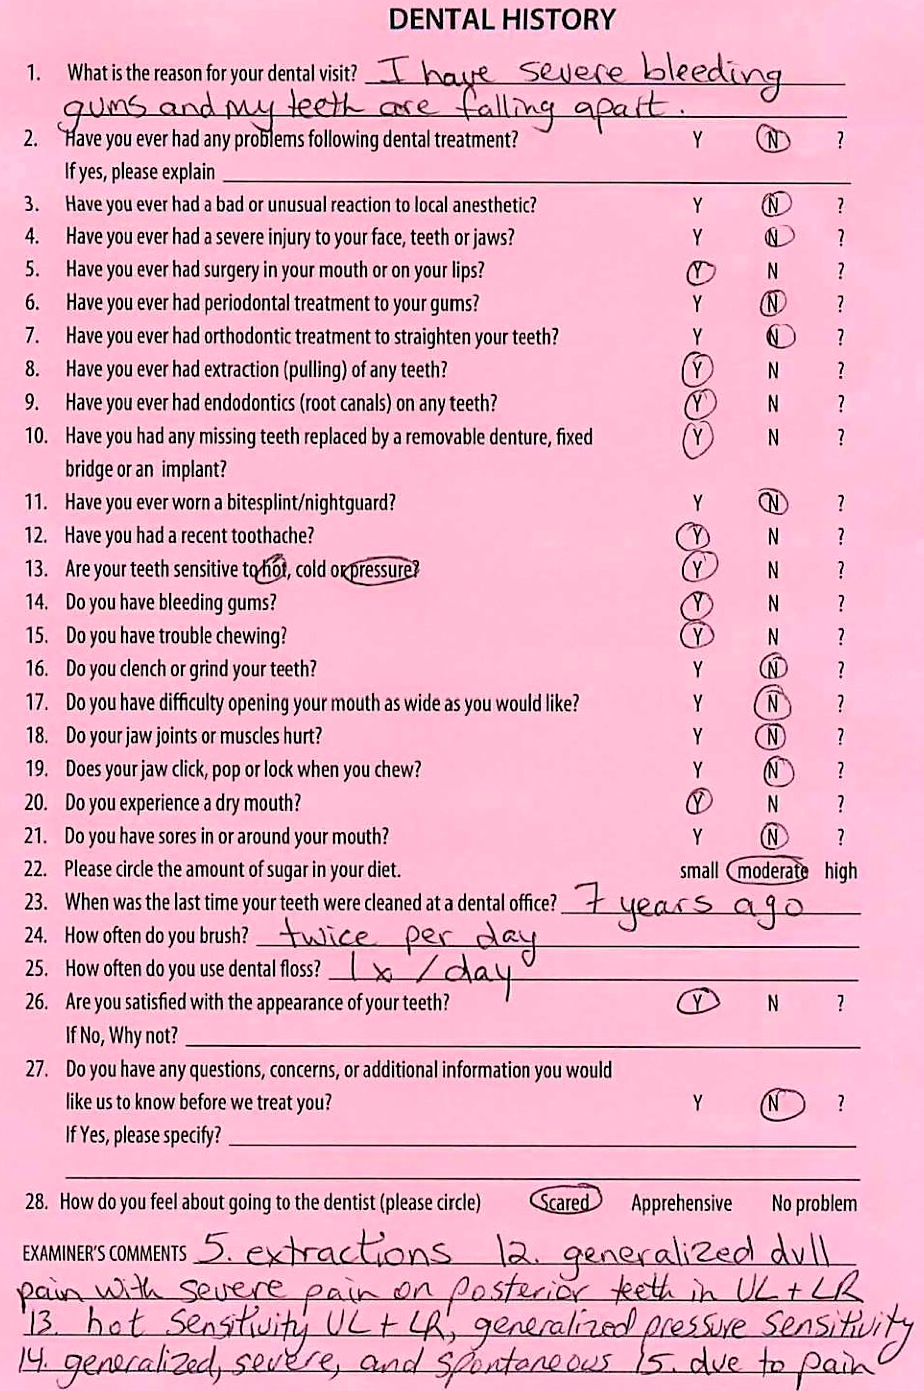 DENTAL HISTORY
1. What is the reason for your dental visit? I have severe bleeding
gums and my teeth are falling apart.
2. Have you ever had any problems following dental treatment? Y N ?
If yes, please explain
3. Have you ever had a bad or unusual reaction to local anesthetic? Y N ?
4. Have you ever had a severe injury to your face, teeth or jaws? Y N ?
5. Have you ever had surgery in your mouth or on your lips? Y N ?
6. Have you ever had periodontal treatment to your gums? Y N ?
7. Have you ever had orthodontic treatment to straighten your teeth? Y N ?
8. Have you ever had extraction (pulling) of any teeth? Y N ?
9. Have you ever had endodontics (root canals) on any teeth? Y N ?
10. Have you had any missing teeth replaced by a removable denture, fixed Y N ?
bridge or an implant?
11. Have you ever worn a bitesplint/nightguard? Y N ?
12. Have you had a recent toothache? Y N ?
13. Are your teeth sensitive to hot, cold or pressure? Y N ?
14. Do you have bleeding gums? Y N ?
15. Do you have trouble chewing? Y N ?
16. Do you clench or grind your teeth? Y N ?
17. Do you have difficulty opening your mouth as wide as you would like? Y N ?
18. Do your jaw joints or muscles hurt? Y N ?
19. Does your jaw click, pop or lock when you chew? Y N ?
20. Do you experience a dry mouth? Y N ?
21. Do you have sores in or around your mouth? Y N ?
22. Please circle the amount of sugar in your diet. small moderate high
23. When was the last time your teeth were cleaned at a dental office? 7 years ago
24. How often do you brush? twice per day
25. How often do you use dental floss? 1x/day
26. Are you satisfied with the appearance of your teeth? Y N ?
If No, Why not?
27. Do you have any questions, concerns, or additional information you would
like us to know before we treat you? Y N ?
If Yes, please specify?
28. How do you feel about going to the dentist (please circle) Scared Apprehensive No problem
EXAMINER'S COMMENTS 5. extractions 12. generalized dull
pain with severe pain on posterior teeth in UL + LR
13. hot sensitivity UL + LR, generalized pressure sensitivity
14. generalized, severe, and spontaneous 15. due to pain